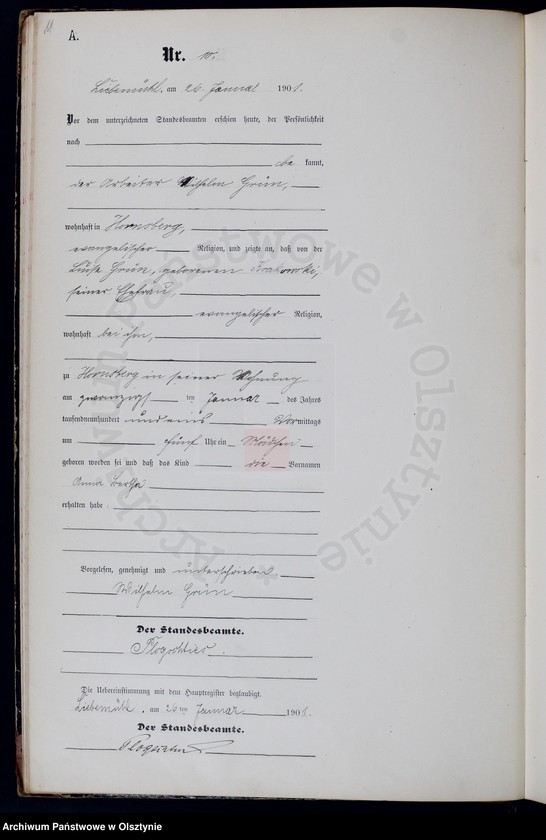 11
A.
Nr. 10.
Liebemühl, am 26. Januar 1901.
Vor dem unterzeichneten Standesbeamten erschien heute, der Persönlichkeit
nach
kannt,
der Arbeiter Wilhelm Grün,
wohnhaft in Hornsberg,
evangelischer Religion, und zeigte an, daß von der
Luise Grün, geborenen
seiner Ehefrau,
evangelischer Religion,
wohnhaft bei ihm,
zu Hornsberg in seiner Wohnung
am zwanzigsten Januar des Jahres
tausendneunhundert und eins Vormittags
um fünf Uhr ein Mädchen
geboren worden sei und daß das Kind die Vornamen
Anna Bertha
erhalten habe.
Vorgelesen, genehmigt und unterschrieben
Wilhelm Grün
Der Standesbeamte.
Die Uebereinstimmung mit dem Hauptregister beglaubigt.
Liebemühl, am 26ten Januar 1901.
Der Standesbeamte.
Archiwum Państwowe w Olsztynie
* Archiwum Państwowe w Olsztynie